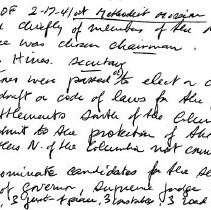 OF 2-17-41 at Methodist Mission
chiefly of members of the
ce was chosen chairman.
Hines. secretary
were passed to elect a c
draft a code of laws for the
ettlements South of the Colum
dmit to the protection of th
tlers N. of the Columbia not conn
ominate candidates for the se
of governor, supreme judge
, 3 just of peace, 3 constables, 3 road